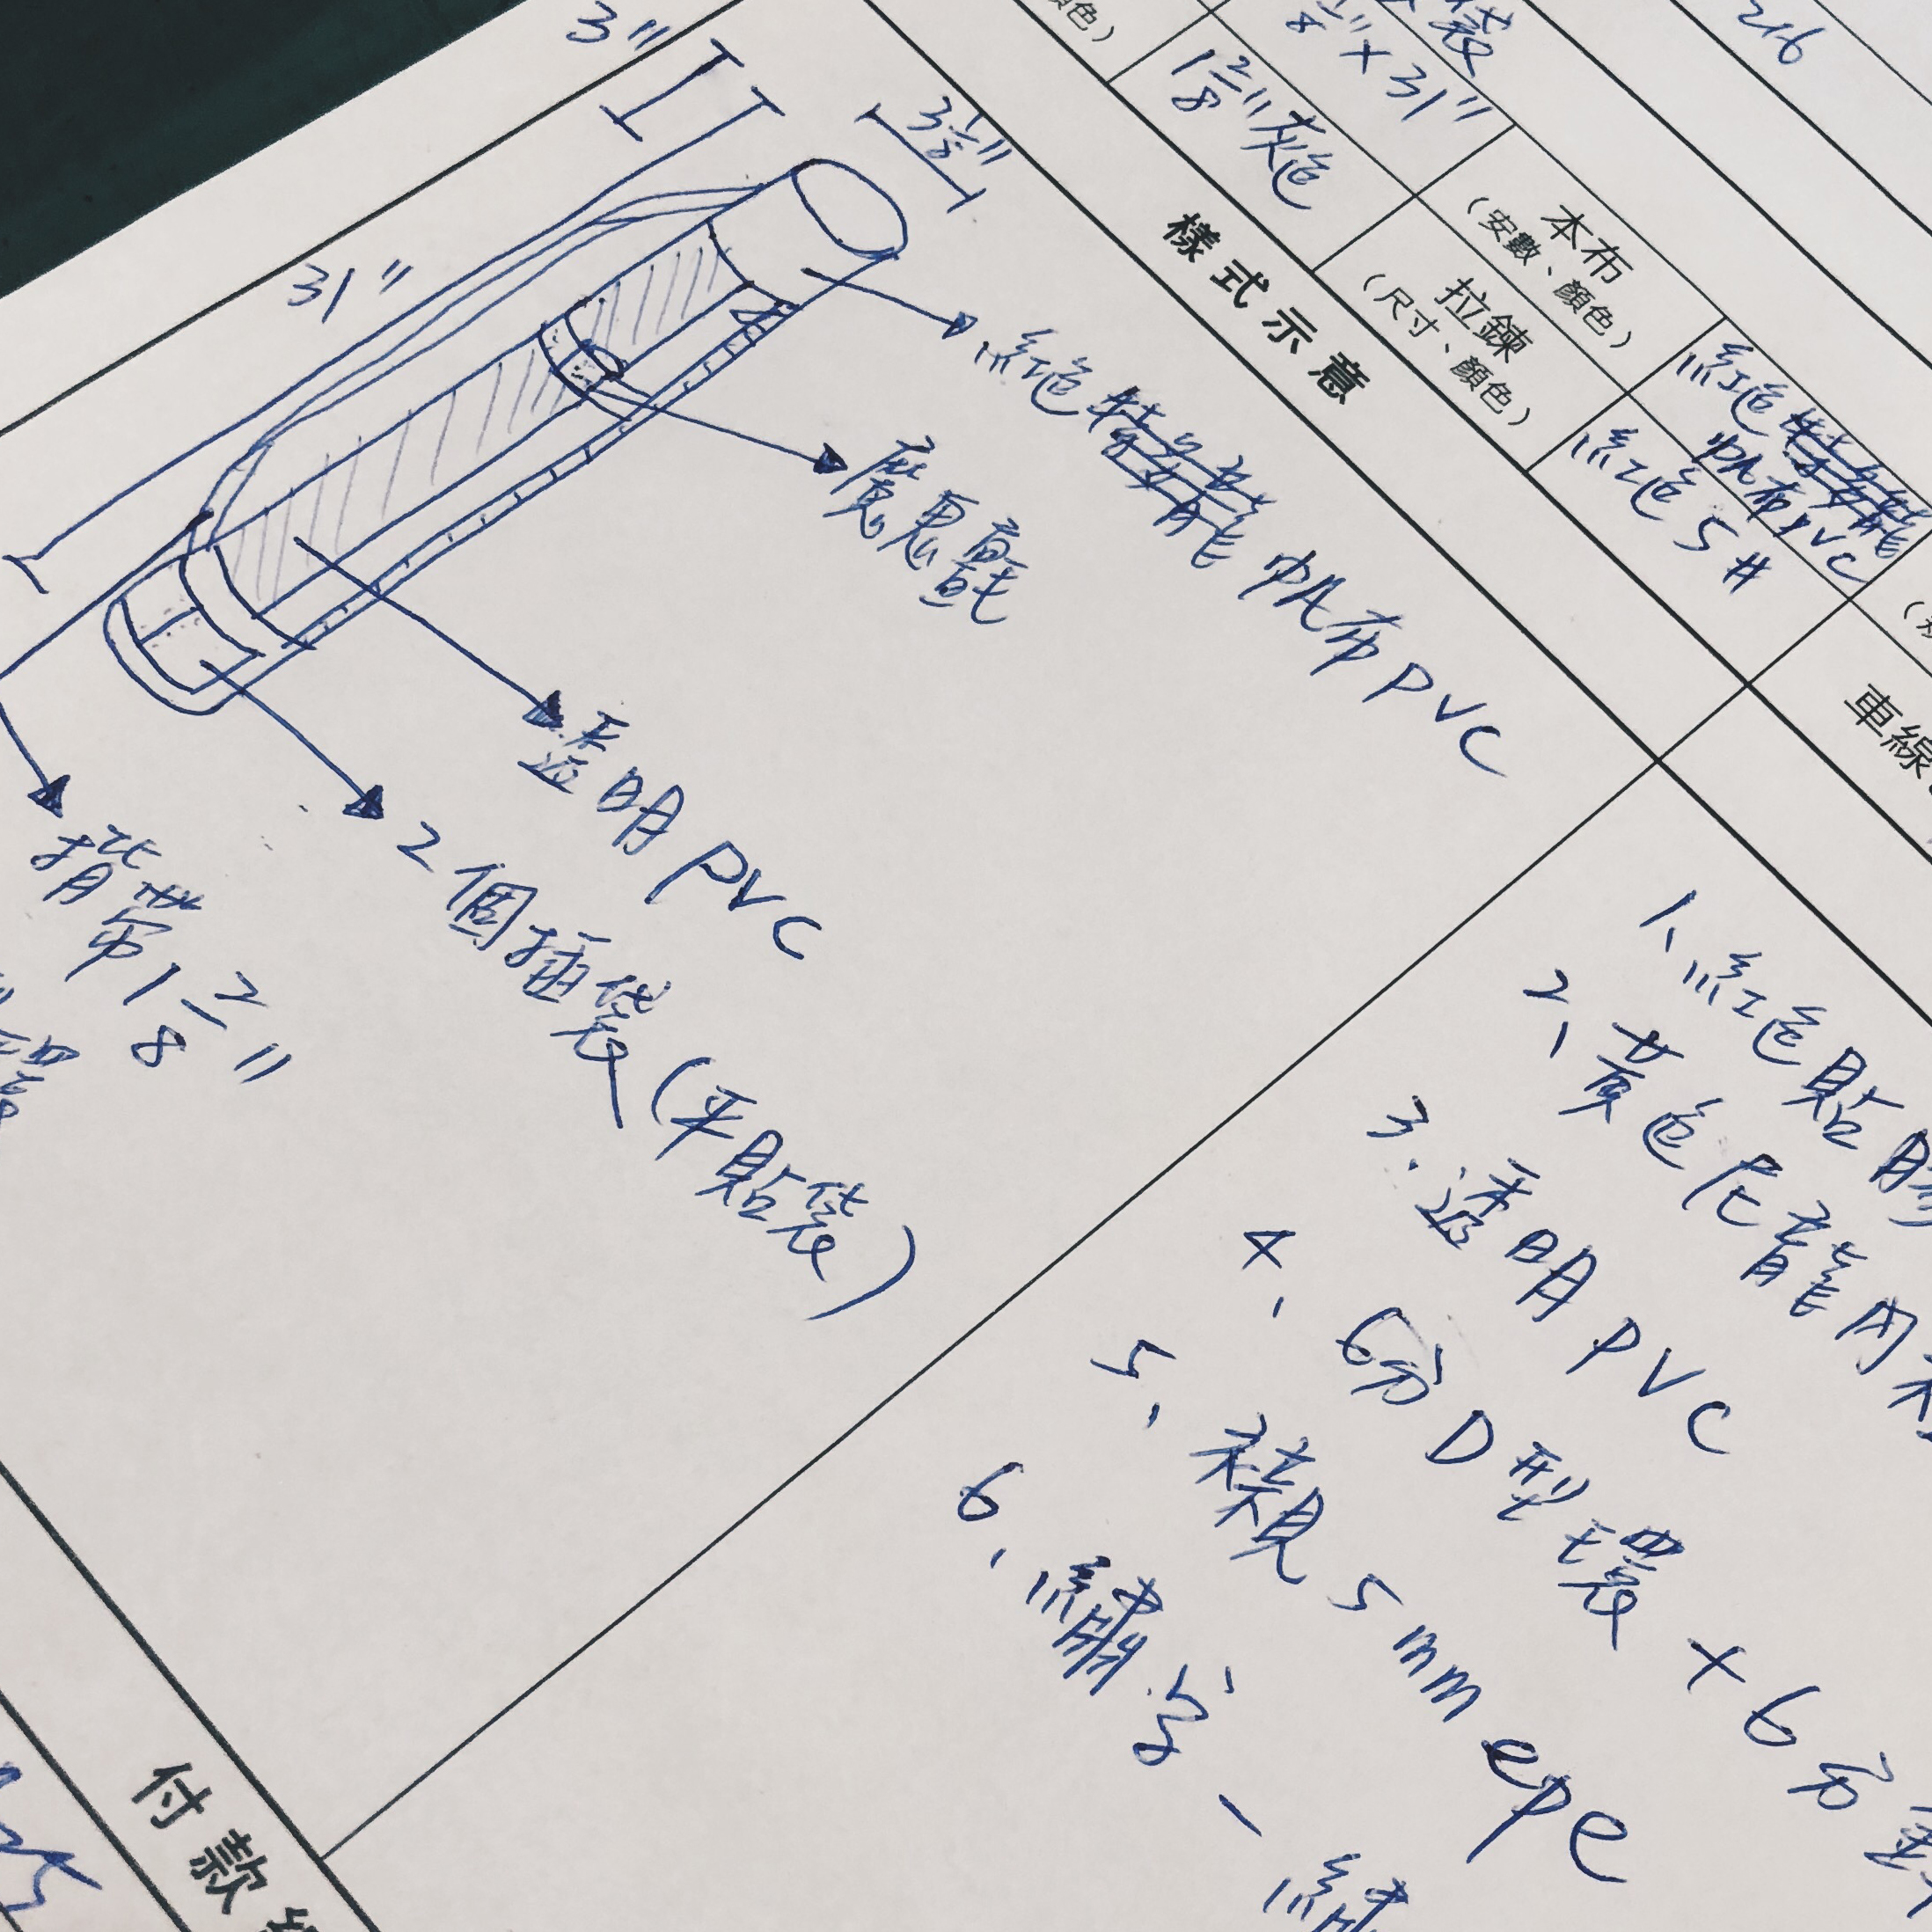 216
袋
" × 31"
顏色）
1 2/8" 灰色
本布
（安數、顏色）
紅色
帆布PVC
拉鍊
（尺寸、顏色）
紅色 5#
車線
樣式示意
3"
3 1/8"
31"
紅色 帆布PVC
魔鬼氈
透明PVC
2個插袋（平貼袋）
揹帶 1 2/8"
環
1、紅色貼膠
2、黃色尼龍內
3、透明PVC
4、6分D型環+6分
5、襯5mm epe
6、繡字-繡
付款